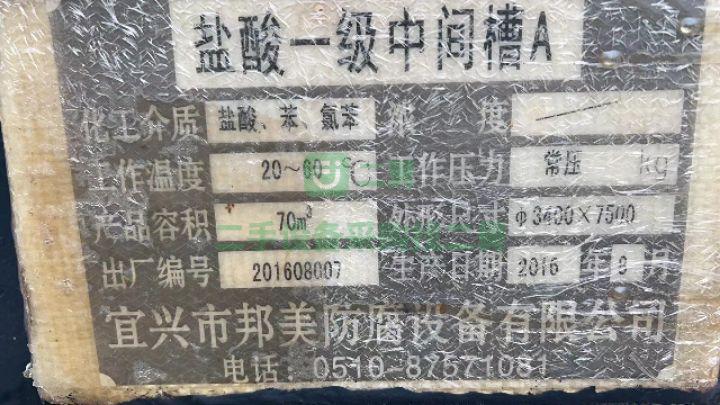 盐酸一级中间槽A
化工介质 盐酸、苯、氯苯 浓度
工作温度 20～60℃ 工作压力 常压 kg
产品容积 70m³ 外形尺寸 φ3400×7500
出厂编号 201608007 生产日期 2016年8月
宜兴市邦美防腐设备有限公司
电话：0510-87571081